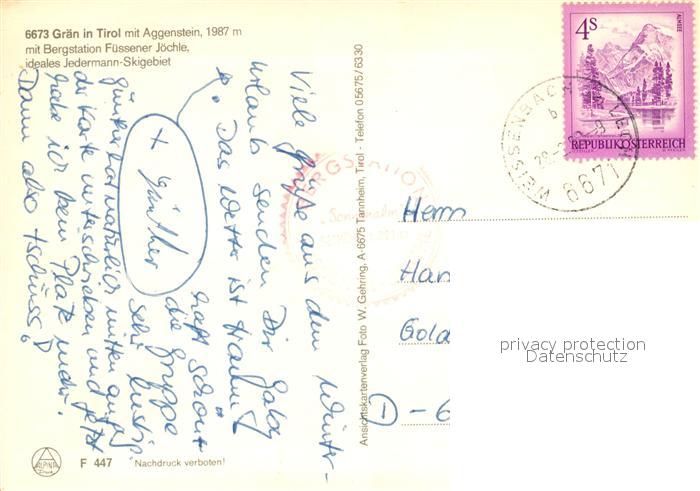 6673 Grän in Tirol mit Aggenstein, 1987 m
mit Bergstation Füssener Jöchle,
ideales Jedermann-Skigebiet
Viele Grüße aus dem Winter-
urlaub senden Dir Gaby
Das Wetter ist traum-
haft schön
die Gruppe
sehr lustig
+ Günther
Günther hat natürlich mitten auf
der Karte unterschrieben und jetzt
habe ich kein Platz mehr.
Dann also tschüss
Ansichtskartenverlag Foto W. Gehring, A-6675 Tannheim, Tirol - Telefon 05675/6330
BERGSTATION
Sonnenalm
4S
ALMSEE
REPUBLIK ÖSTERREICH
WEISSENBACH
b
6671
Herrn
Han
Gola
D-6
privacy protection
Datenschutz
ALPINA
F 447
Nachdruck verboten!